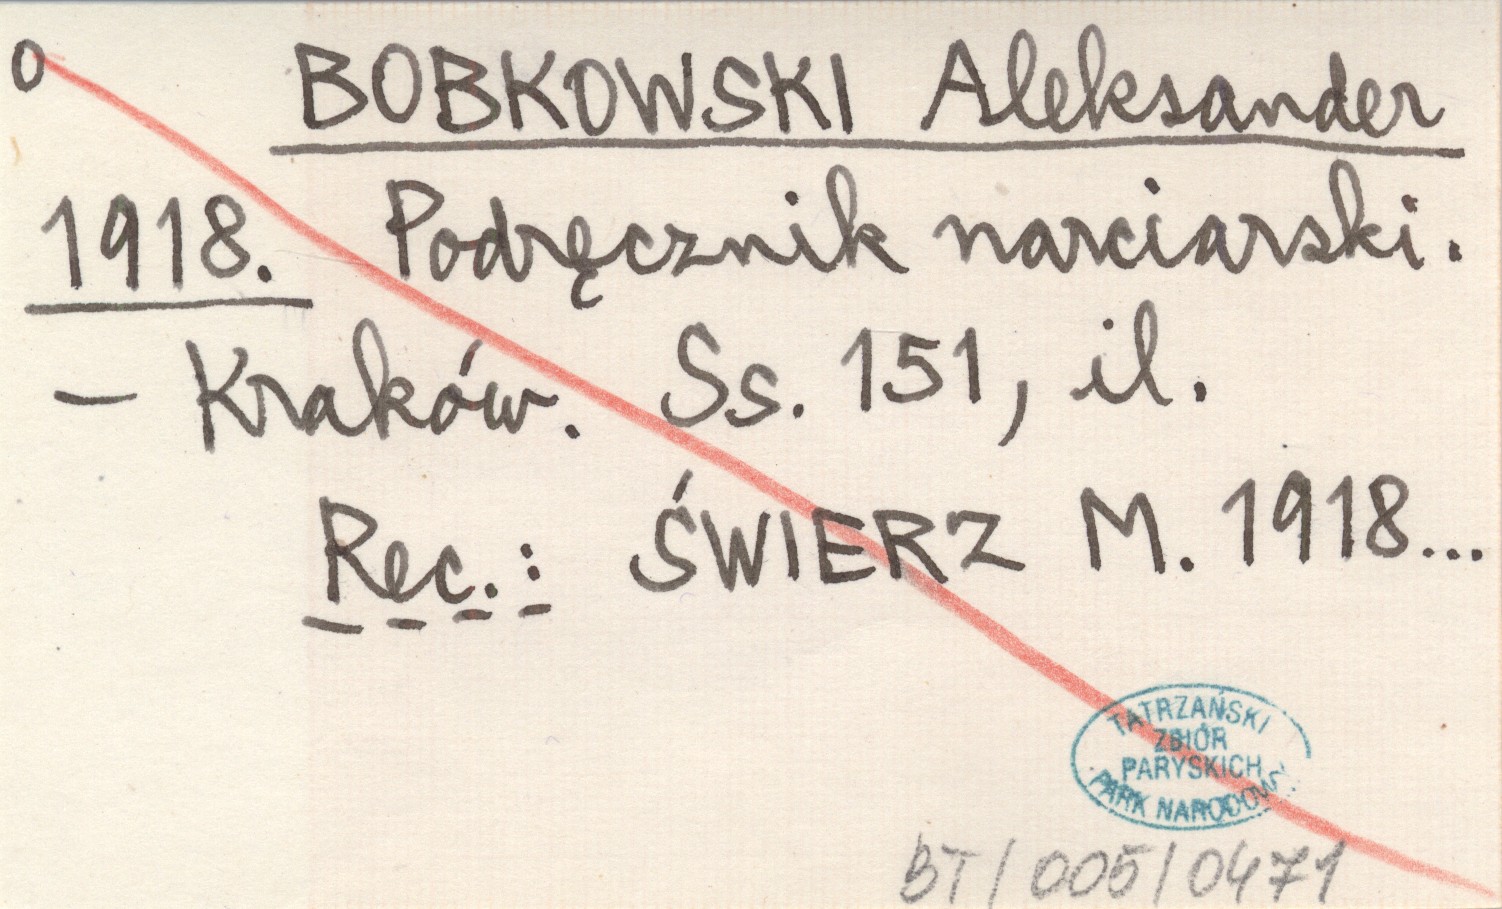 o BOBKOWSKI Aleksander
1918. Podręcznik narciarski.
– Kraków. Ss. 151, il.
Rec.: ŚWIERZ M. 1918...
TATRZAŃSKI
ZBIÓR
PARYSKICH
PARK NARODOWY
BT/005/0471